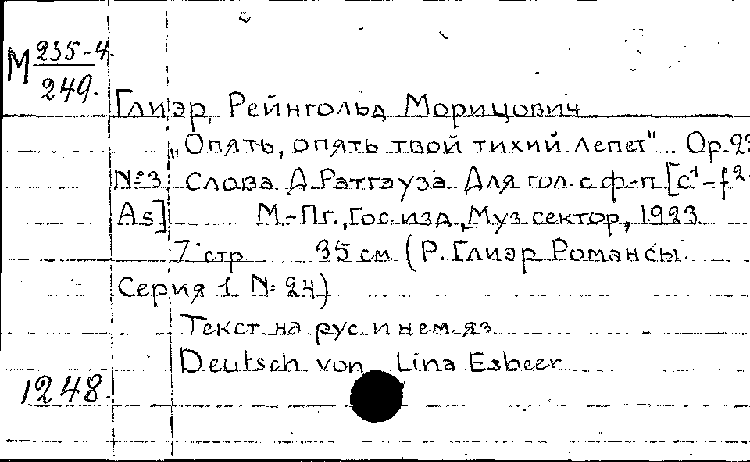 М 235-4
249.
Глиэр, Рейнгольд Морицович
„Опять, опять твой тихий лепет". Ор. 23
№ 3 Слова Д. Ратгауза. Для гол. с ф-п [c¹-f²-
As] М.-Пг., Гос. изд., Муз. сектор, 1923
7 стр 35 см (Р. Глиэр Романсы.
Серия 1 № 24)
Текст на рус. и нем. яз
Deutsch von Lina Esbeer
1248.